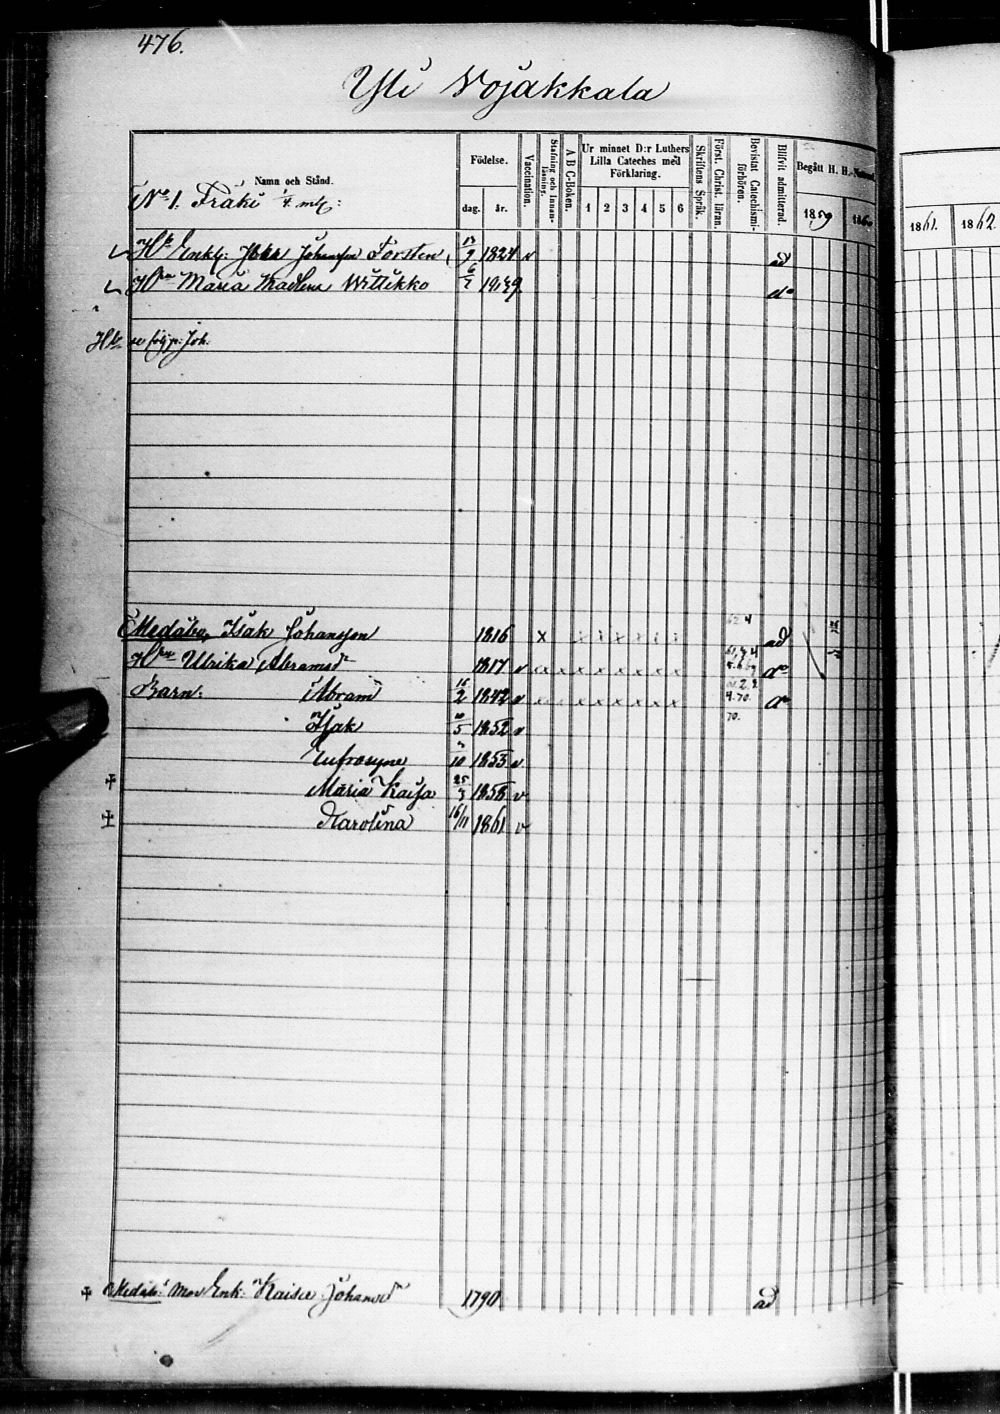 476.
Yli Vojakkala
Namn och Stånd.
Födelse.
dag. år.
Vaccination.
Stafning och Innan-
läsning.
A B C-Boken.
Ur minnet D:r Luthers
Lilla Cateches med
Förklaring.
1 2 3 4 5 6
Skriftens Språk.
Först. Christ. läran.
Bevistat Catechismi-
förhören.
Blifvit admitterad.
Begått H. H.
1859 1860
1861. 1862.
No 1. Fräki 1/4 mtl:
Johansson Forsten 1824 v ad
Maria Wittikko do
se följ. p. Joh.
Isak Johansson 1816 x x x x x x ad
Ulrika Abramsd 1817 v x x x x x x do
Barn: Abram 2 1842 v x x x x x x do
Isak 5 1852 v
Eufrosyne 10 1855 v
Maria Kaisa 25 1858 v
Karolina 16/11 1861 v
Mor Enk: Kaisa Johansd 1790 ad